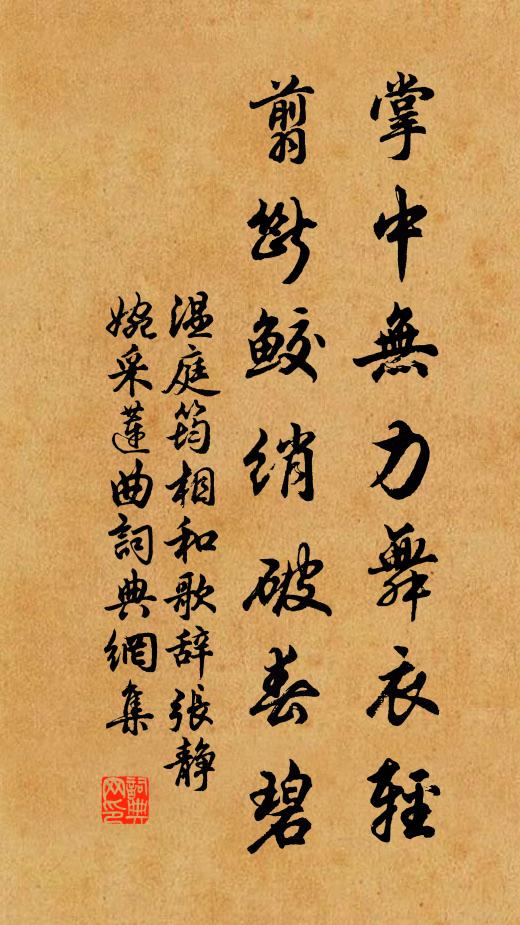 掌中無力舞衣輕
剪斷鮫綃破春碧
温庭筠相和歌辞張静
婉采蓮曲詞典網集
詞典
网印